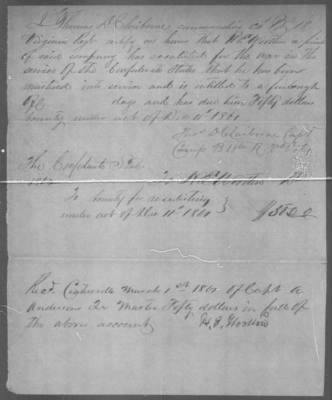 I Thomas D. Claiborne commanding Co B 18
Virginia Regt certify on honor that a private
of said company has reenlisted for the war in the
service of the Confederate States that he has been
mustered into service and is entitled to a furlough
of days and has due him Fifty dollars
bounty under act of Dec 11th 1861
Thos D Claiborne Capt
Comg B 18th R Va Vols
The Confederate States
To Dr
To bounty for reenlisting
under act of Dec 11th 1861 } $50.00
Recd March 1st 1862 of Capt R
Anderson Qr Master Fifty dollars in full of
the above account